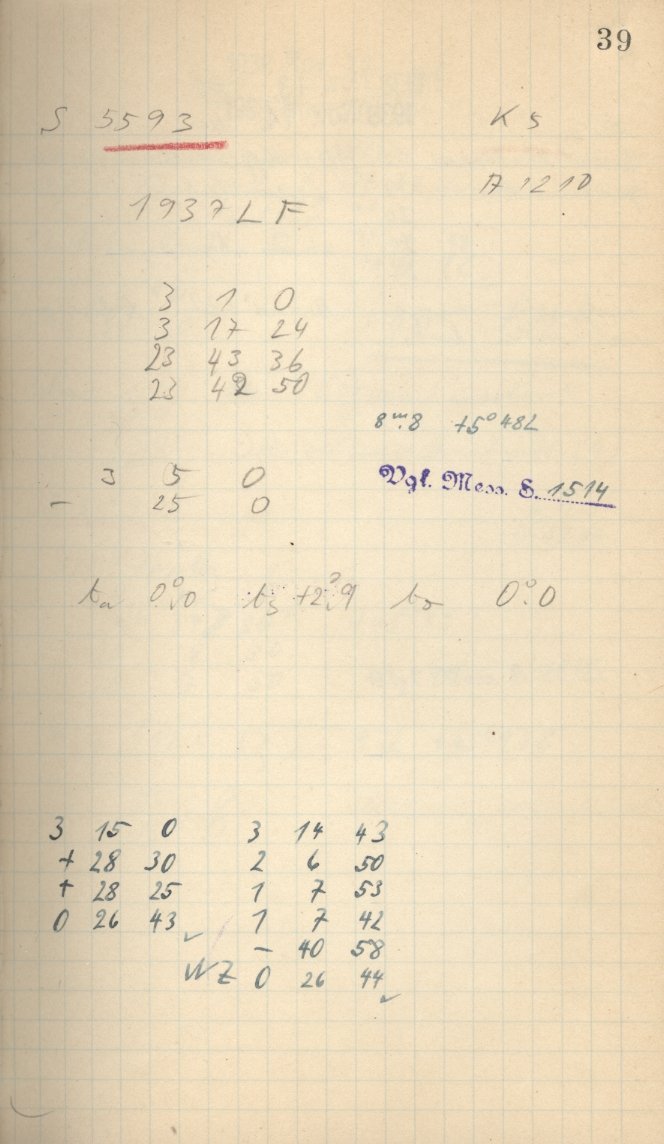 39
S 5593 K 5
A 1210
1937 L F
3 1 0
3 17 24
23 43 36
23 42 50
8ᵐ.8 +5° 482
Vgl. Mess. S. 1514
3 5 0
− 25 0
0°.0 +2°.9 0°.0
3 15 0 3 14 43
+ 28 30 2 6 50
+ 28 25 1 7 53
0 26 43 ✓ 1 7 42
− 40 58
WZ 0 26 44 ✓